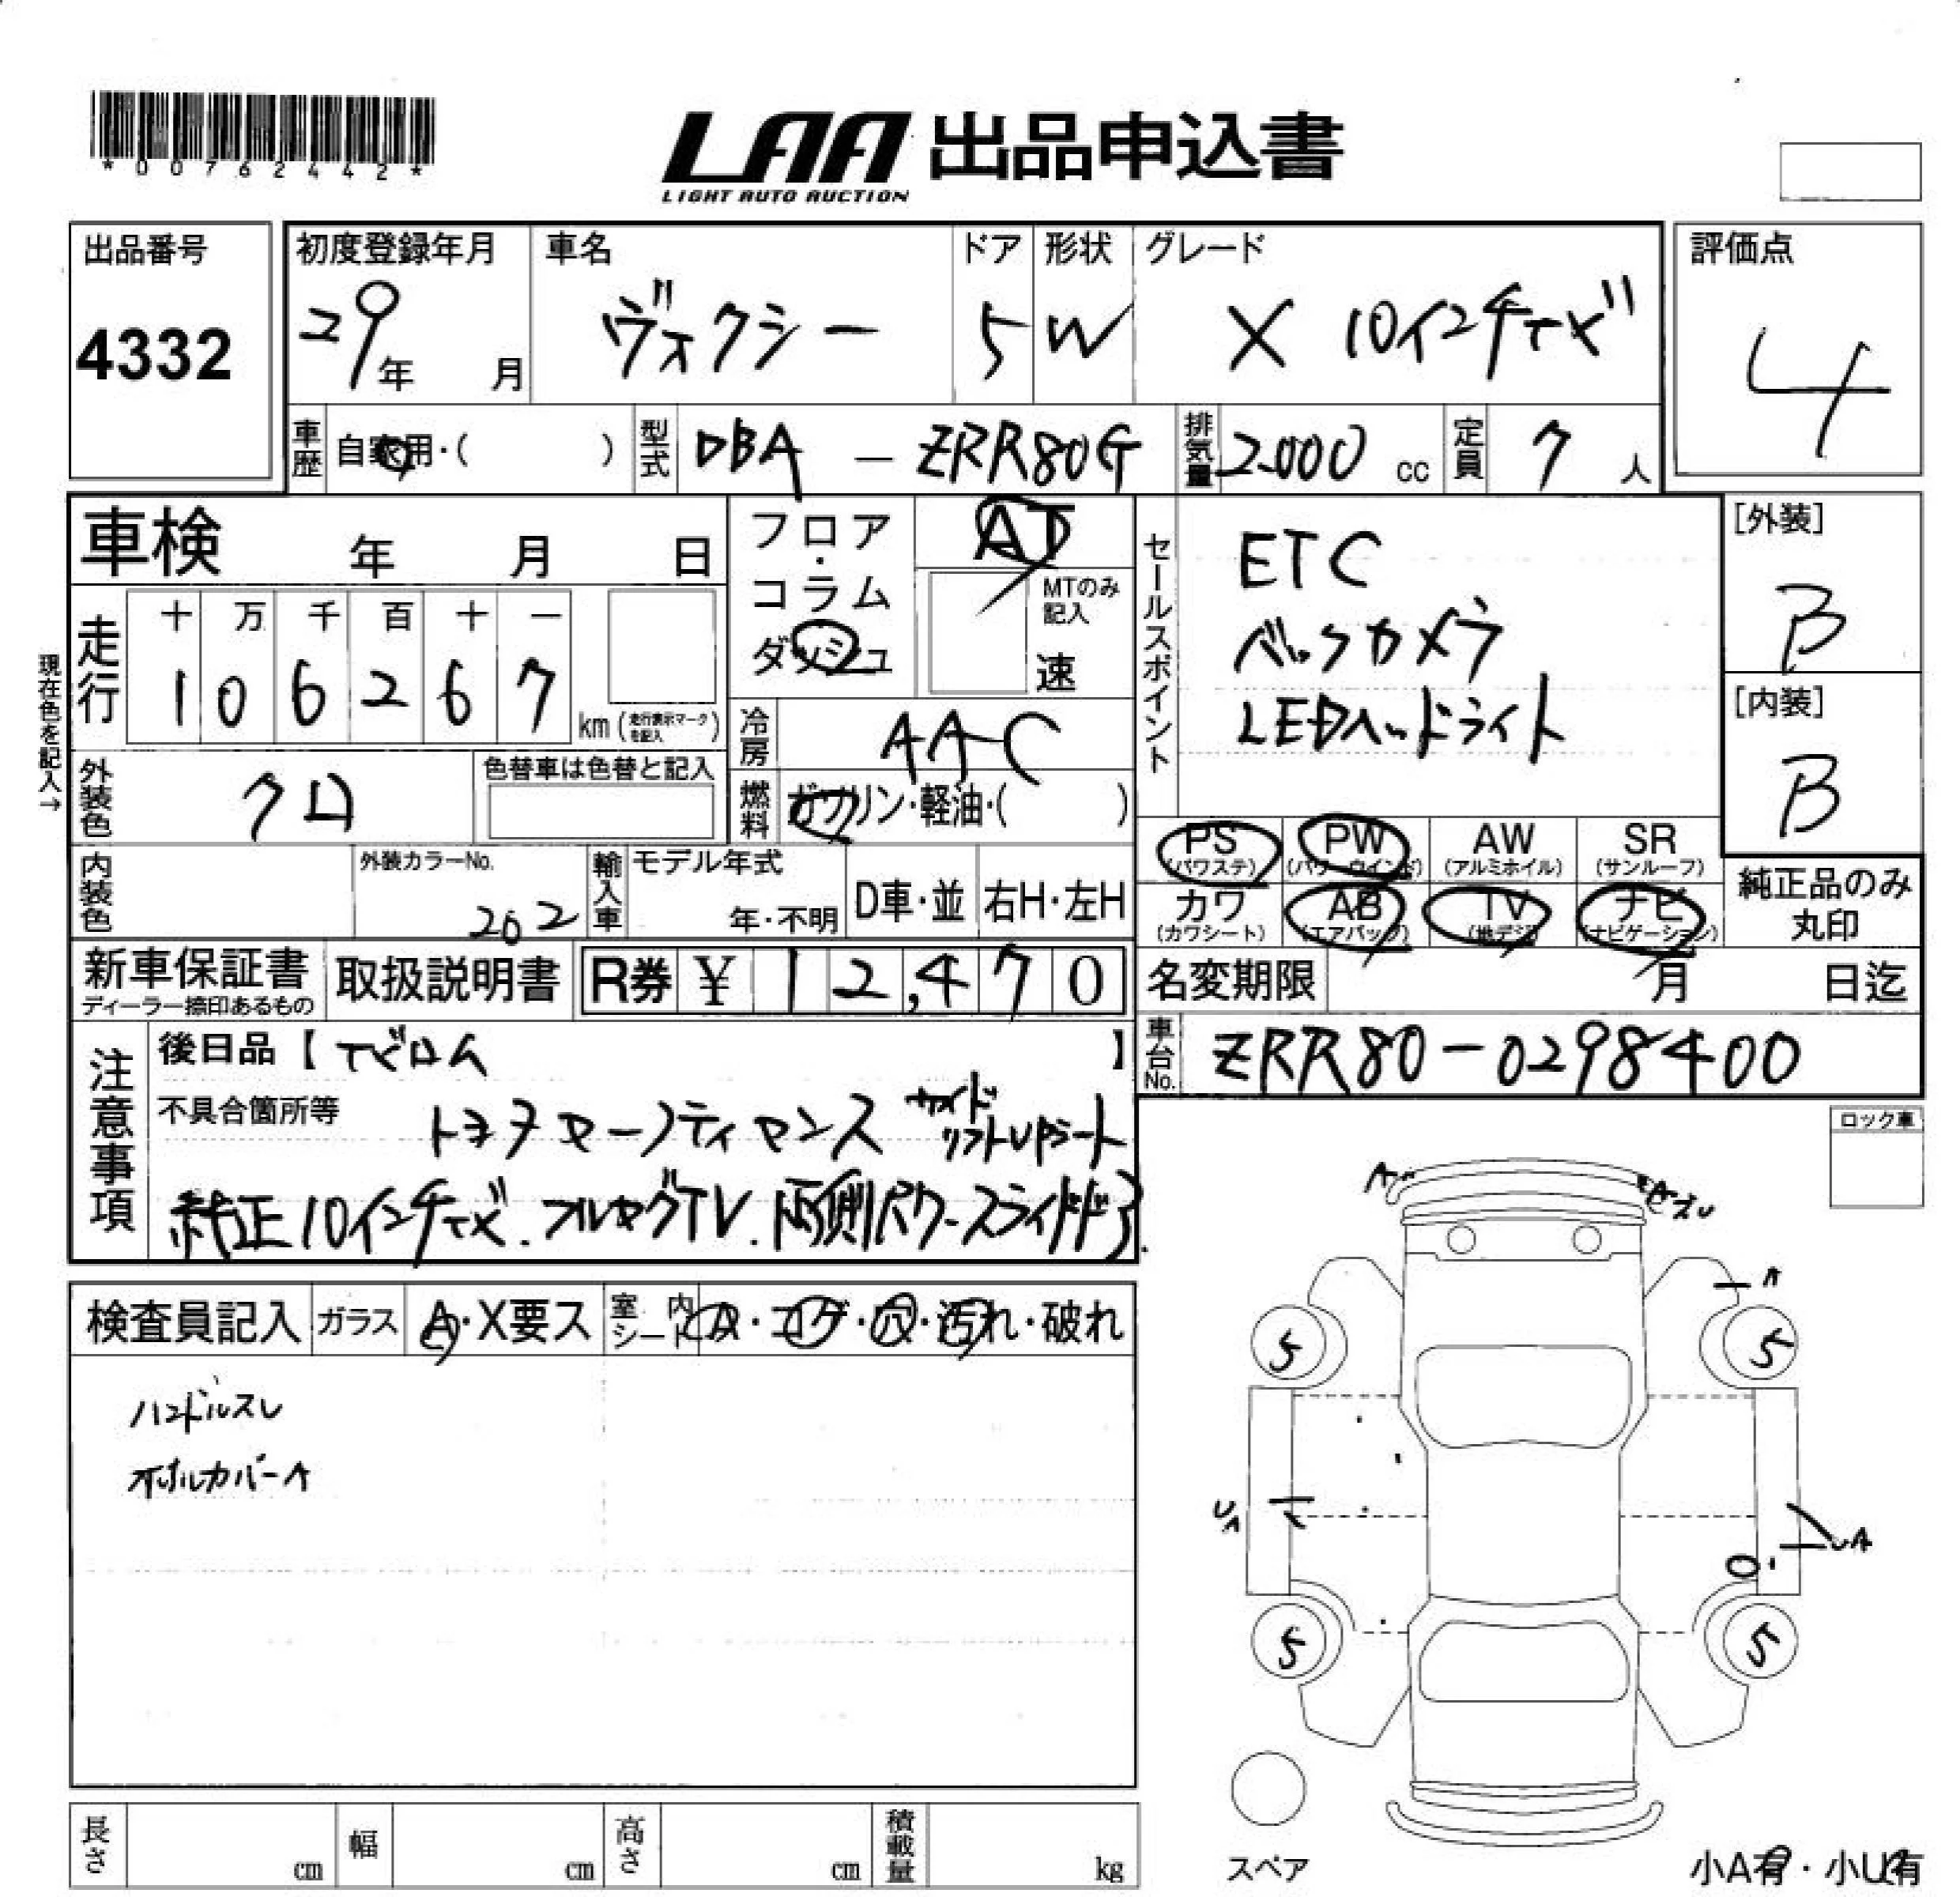 *00762442*
LAA 出品申込書
LIGHT AUTO AUCTION
出品番号
4332
初度登録年月
29年 月
車名
ヴォクシー
ドア
5
形状
W
グレード
X 10インチナビ
評価点
4
車歴
自家用・( )
型式
DBA - ZRR80G
排気量
2000 cc
定員
7 人
車検 年 月 日
フロア・コラム
ダッシュ
AT
MTのみ記入
速
現在色を記入→
走行
十 万 千 百 十 一
1 0 6 2 6 7
km (走行表示マークを記入)
冷房
AAC
燃料
ガソリン・軽油・( )
外装色
クロ
色替車は色替と記入
内装色
外装カラーNo.
202
輸入車
モデル年式
年・不明
D車・並
右H・左H
セールスポイント
ETC
バックカメラ
LEDヘッドライト
[外装]
B
[内装]
B
PS (パワステ)
PW (パワーウインド)
AW (アルミホイル)
SR (サンルーフ)
カワ (カワシート)
AB (エアバッグ)
TV (地デジ)
ナビ (ナビゲーション)
純正品のみ
丸印
新車保証書
ディーラー捺印あるもの
取扱説明書
R券 ¥ 12,470
名変期限 月 日迄
注意事項
後日品【ナビロム】
不具合箇所等
サイド
リフトUPシート
純正10インチナビ.フルセグTV.両側パワースライドドア.
車台No.
ZRR80-0298400
ロック車
検査員記入
ガラス
A・X要ス
室内シート
A・コゲ・穴・汚れ・破れ
ハンドルスレ
ホイルカバーA
A
A
5
5
UA
UA
5
5
スペア
小A有・小U有
長さ cm
幅 cm
高さ cm
積載量 kg